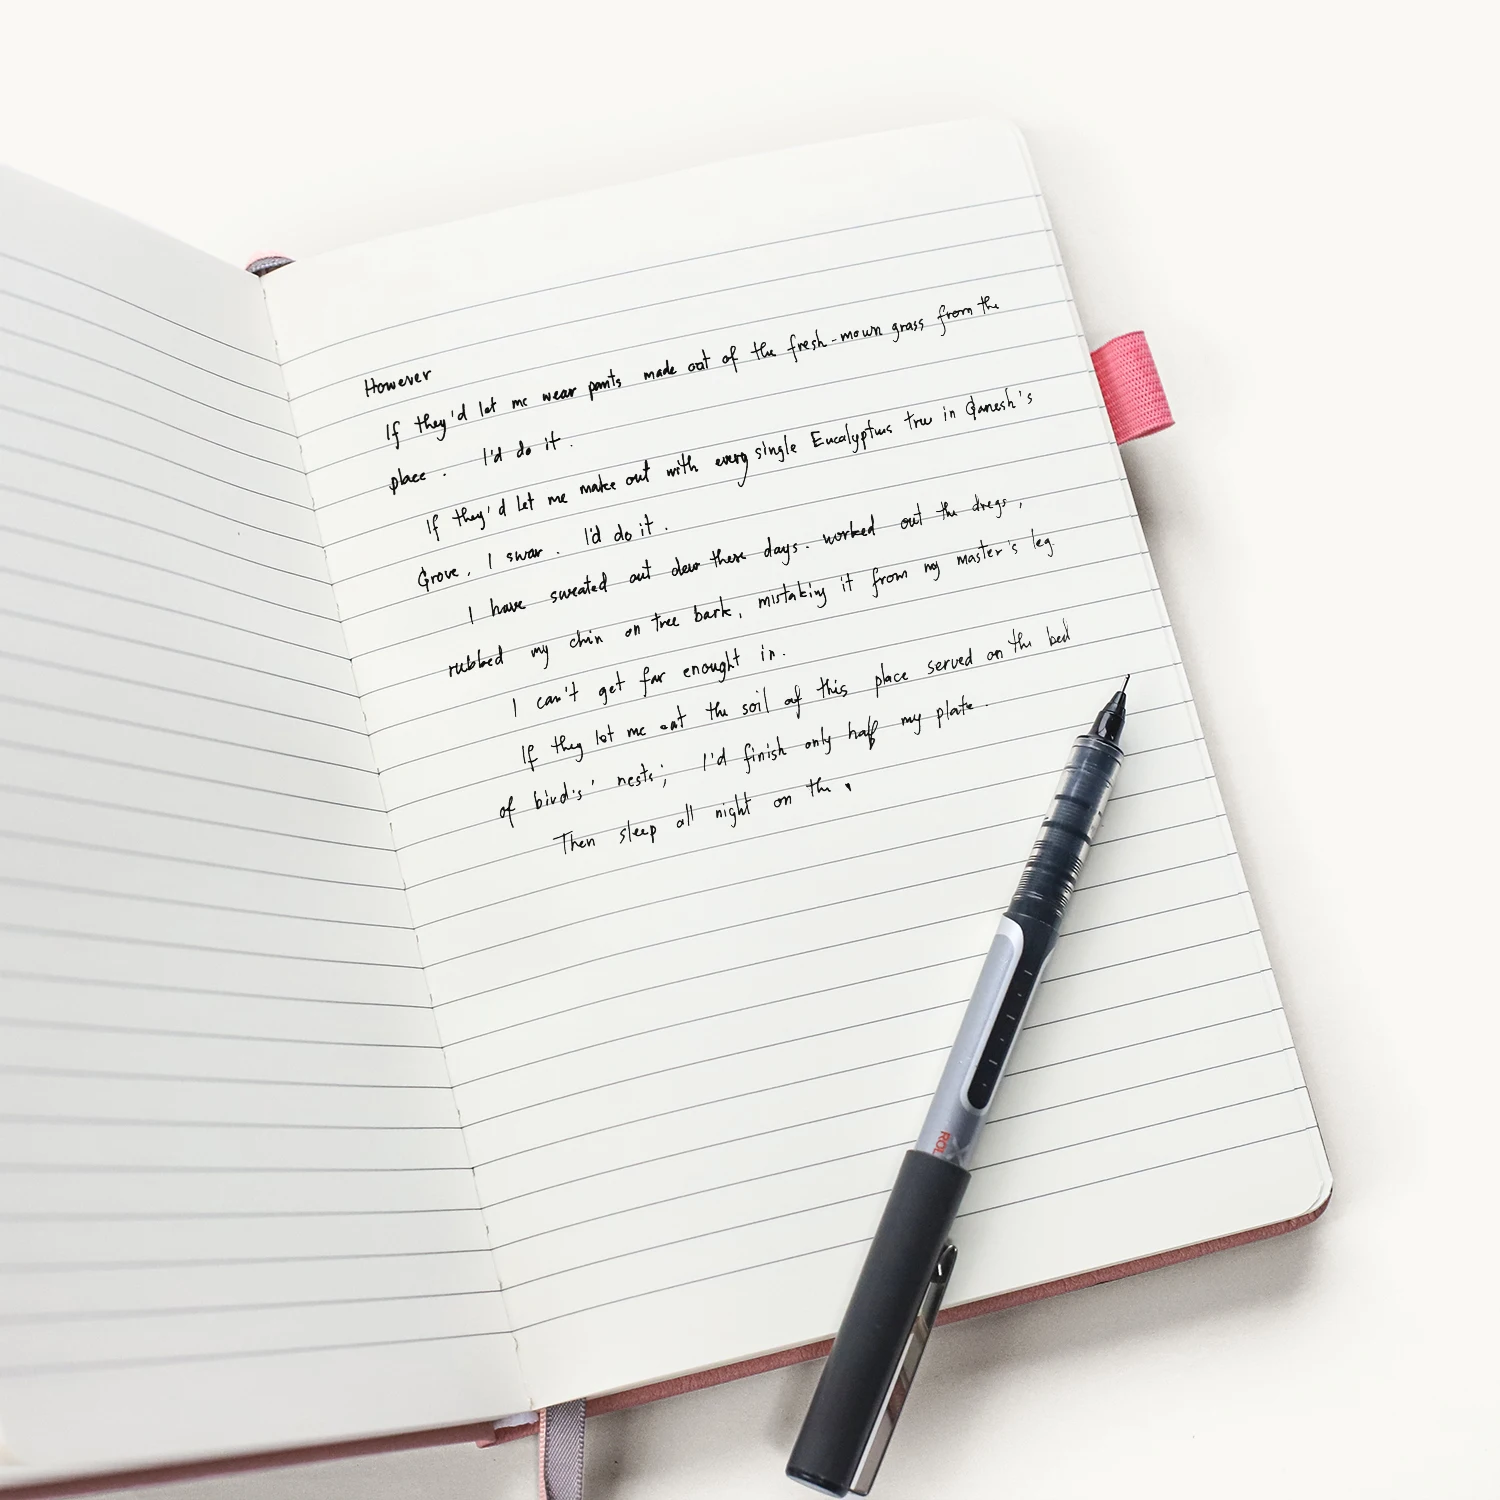 However
If they'd let me wear pants made out of the fresh-mown grass from the
place. I'd do it.
If they'd let me make out with every single Eucalyptus tree in Ganesh's
Grove, I swear. I'd do it.
I have sweated out dew these days. worked out the dregs,
rubbed my chin on tree bark, mistaking it from my master's leg.
I can't get far enought in.
If they let me eat the soil of this place served on the bed
of bird's' nests; I'd finish only half my plate.
Then sleep all night on the
ROL